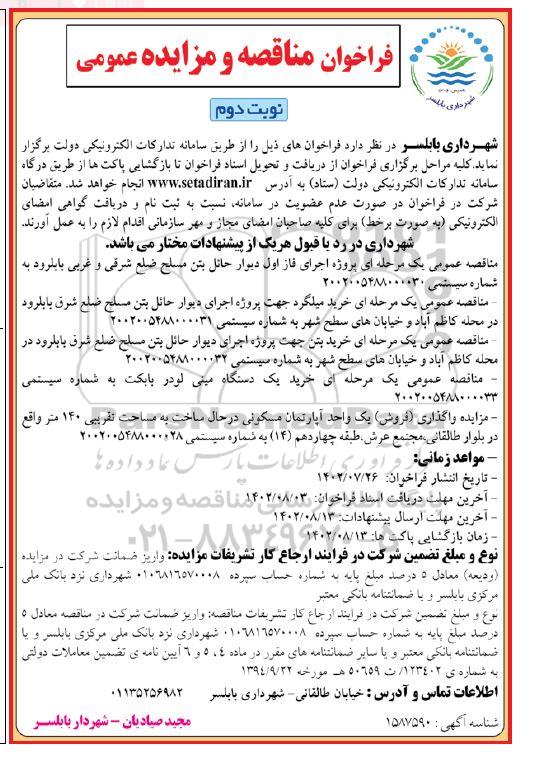 شهرداری بابلسر
فراخوان مناقصه و مزایده عمومی
نوبت دوم
شهرداری بابلسر در نظر دارد فراخوان های ذیل را از طریق سامانه تدارکات الکترونیکی دولت برگزار
نماید.کلیه مراحل برگزاری فراخوان از دریافت و تحویل اسناد فراخوان تا بازگشایی پاکت ها از طریق درگاه
سامانه تدارکات الکترونیکی دولت (ستاد) به آدرس www.setadiran.ir انجام خواهد شد. متقاضیان
شرکت در فراخوان در صورت عدم عضویت در سامانه، نسبت به ثبت نام و دریافت گواهی امضای
الکترونیکی (به صورت برخط) برای کلیه صاحبان امضای مجاز و مهر سازمانی اقدام لازم را به عمل آورند.
شهرداری در رد یا قبول هریک از پیشنهادات مختار می باشد.
مناقصه عمومی یک مرحله ای پروژه اجرای فاز اول دیوار حائل بتن مسلح ضلع شرقی و غربی بابلرود به
شماره سیستمی ۲۰۰۲۰۰۵۴۸۸۰۰۰۰۳۰
- مناقصه عمومی یک مرحله ای خرید میلگرد جهت پروژه اجرای دیوار حائل بتن مسلح ضلع شرق بابلرود
در محله کاظم آباد و خیابان های سطح شهر به شماره سیستمی ۲۰۰۲۰۰۵۴۸۸۰۰۰۰۳۱
- مناقصه عمومی یک مرحله ای خرید بتن جهت پروژه اجرای دیوار حائل بتن مسلح ضلع شرق بابلرود در
محله کاظم آباد و خیابان های سطح شهر به شماره سیستمی ۲۰۰۲۰۰۵۴۸۸۰۰۰۰۳۲
- مناقصه عمومی یک مرحله ای خرید یک دستگاه مینی لودر بابکت به شماره سیستمی
۲۰۰۲۰۰۵۴۸۸۰۰۰۰۳۳
- مزایده واگذاری (فروش) یک واحد آپارتمان مسکونی درحال ساخت به مساحت تقریبی ۱۴۰ متر واقع
در بلوار طالقانی،مجتمع عرش،طبقه چهاردهم (۱۴) به شماره سیستمی ۲۰۰۲۰۰۵۴۸۸۰۰۰۰۲۸
– مواعد زمانی:
- تاریخ انتشار فراخوان: ۱۴۰۲/۰۷/۲۶
- آخرین مهلت دریافت اسناد فراخوان: ۱۴۰۲/۰۸/۰۳
- آخرین مهلت ارسال پیشنهادات: ۱۴۰۲/۰۸/۱۳
- زمان بازگشایی پاکت ها: ۱۴۰۲/۰۸/۱۳
نوع و مبلغ تضمین شرکت در فرایند ارجاع کار تشریفات مزایده: واریز ضمانت شرکت در مزایده
(ودیعه) معادل ۵ درصد مبلغ پایه به شماره حساب سپرده ۰۱۰۶۸۱۶۵۷۰۰۰۸ شهرداری نزد بانک ملی
مرکزی بابلسر و یا ضمانتنامه بانکی معتبر
نوع و مبلغ تضمین شرکت در فرایند ارجاع کار تشریفات مناقصه: واریز ضمانت شرکت در مناقصه معادل ۵
درصد مبلغ پایه به شماره حساب سپرده ۰۱۰۶۸۱۶۵۷۰۰۰۸ شهرداری نزد بانک ملی مرکزی بابلسر و یا
ضمانتنامه بانکی معتبر و یا سایر ضمانتنامه های مقرر در ماده ۴، ۵ و ۶ آیین نامه ی تضمین معاملات دولتی
به شماره ی ۱۲۳۴۰۲/ ت ۵۰۶۵۹ هـ مورخه ۱۳۹۴/۹/۲۲
اطلاعات تماس و آدرس : خیابان طالقانی- شهرداری بابلسر ۰۱۱۳۵۲۵۶۹۸۲
شناسه آگهی : ۱۵۸۷۵۹۰
مجید صیادیان – شهردار بابلسر